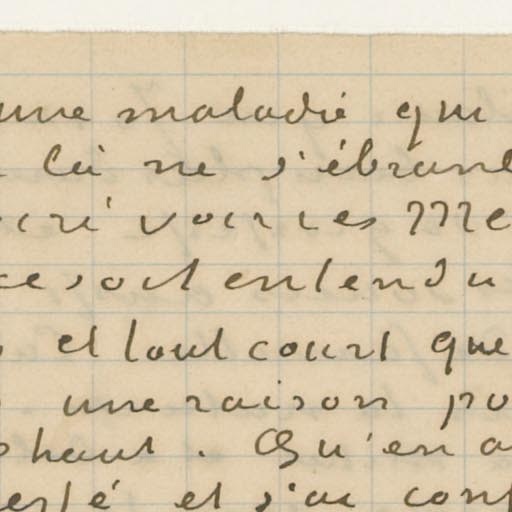 une maladie qui
là ne s'ébranl
cri voir les Me
ce soit entendu
et tout court que
une raison po
haut. Qu'en a
esté et s'ai conf